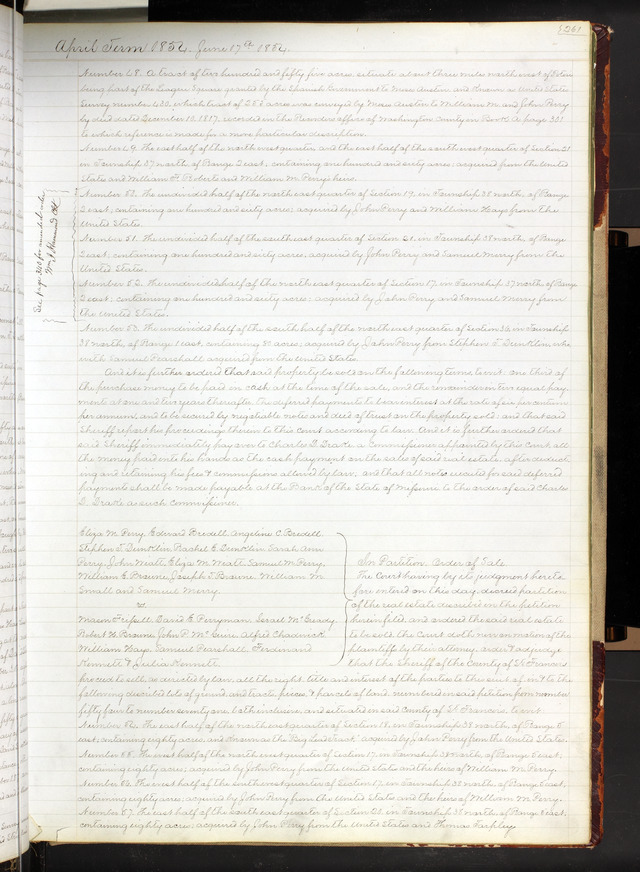 261
April Term 1854. June 17th 1854.
Number 48. A tract of two hundred and fifty five acres situate about three miles north east of Potosi
being part of the League Square granted by the Spanish Government to Moses Austin and known as United States
Survey number 430, which tract of 255 acres was conveyed by Moses Austin to William M. and John Perry
by deed dated December 10, 1817, recorded in the Recorders office of Washington County in Book A page 301
to which reference is made for a more particular description.
Number 49. The east half of the north west quarter and the east half of the south west quarter of Section 21
in Township 37 north, of Range 2 east, containing one hundred and sixty acres; acquired from the United
States and William F. Roberts and William M. Perry's heirs.
Number 50. The undivided half of the north east quarter of Section 19, in Township 38 north, of Range
2 east, containing one hundred and sixty acres; acquired by John Perry and William Hays from the
United States.
Number 51. The undivided half of the south east quarter of Section 21, in Township 38 north, of Range
2 east, containing one hundred and sixty acres; acquired by John Perry and Samuel Merry from the
United States.
Number 52. The undivided half of the north east quarter of Section 17, in Township 37 north, of Range
2 east; containing one hundred and sixty acres; acquired by John Perry and Samuel Merry from
the United States.
See page 240 for amended order
Wm. S. Howard Clk
Number 53. The undivided half of the south half of the north east quarter of Section 35, in Township
38 north, of Range 1 east, containing 80 acres; acquired by John Perry from Stephen T. Dunklin, who
with Samuel Pearshall acquired from the United States.
And it is further ordered that said property be sold on the following terms, to wit: one third of
the purchase money to be paid in cash at the time of the sales, and the remainder in two equal pay-
ments at one and two years thereafter, the deferred payments to bear interest at the rate of six per centum
per annum, and to be secured by negotiable notes and deed of trust on the property sold and that said
Sheriff report his proceedings therein to this Court according to law. And it is further ordered that
said Sheriff immediately pay over to Charles D. Drake a commissioner appointed by this Court all
the money paid into his hands as the cash payment on the sales of said real estate after deduct-
ing and retaining his fees & commissions allowed by law, and that all notes executed for said deferred
payments shall be made payable at the Bank of the State of Missouri to the order of said Charles
D. Drake as such commissioner.
Eliza M. Perry, Edward Bredell, Angeline C. Bredell
Stephen T. Dunklin, Rachel E. Dunklin, Sarah Ann
Perry, John Wiatt, Eliza M. Wiatt, Samuel M. Perry,
William E. Browne, Joseph J. Browne, William M.
Small and Samuel Merry.
vs
Mason Frissell, David E. Perryman, Israel McGready
Robert H. Browne, John P. McCune, Alfred Chadwick
William Hays, Samuel Pearshall, Ferdinand
Kennett & Julia Kennett
In Partition. Order of Sale
The Court having by its judgment hereto-
fore entered on this day, decreed partition
of the real estate described in the petition
herein filed, and ordered the said real estate
to be sold, the Court doth now on motion of the
plaintiffs by their attorney, order & adjudge
that the Sheriff of the County of St Francois
proceed to sell, as directed by law, all the right, title and interest of the parties to the suit of in & to the
following described lots of ground, and tracts, pieces, & parcels of land, numbered in said petition from number
fifty four to number seventy one, both inclusive, and situated in said County of St Francois, to wit:
Number 54. The east half of the north east quarter of Section 18, in Township 38 north, of Range 5
east, containing eighty acres, and known as the acquired by John Perry from the United States.
Number 55. The west half of the north west quarter of Section 17, in Township 38 north, of Range 5 east,
containing eighty acres; acquired by John Perry from the United States and the heirs of William M. Perry.
Number 56. The west half of the southwest quarter of Section 17, in Township 38 north, of Range 5 east,
containing eighty acres; acquired by John Perry from the United States and the heirs of William M. Perry.
Number 57. The east half of the south east quarter of Section 21, in Township 38 north, of Range 5 east,
containing eighty acres; acquired by John Perry from the United States and Thomas